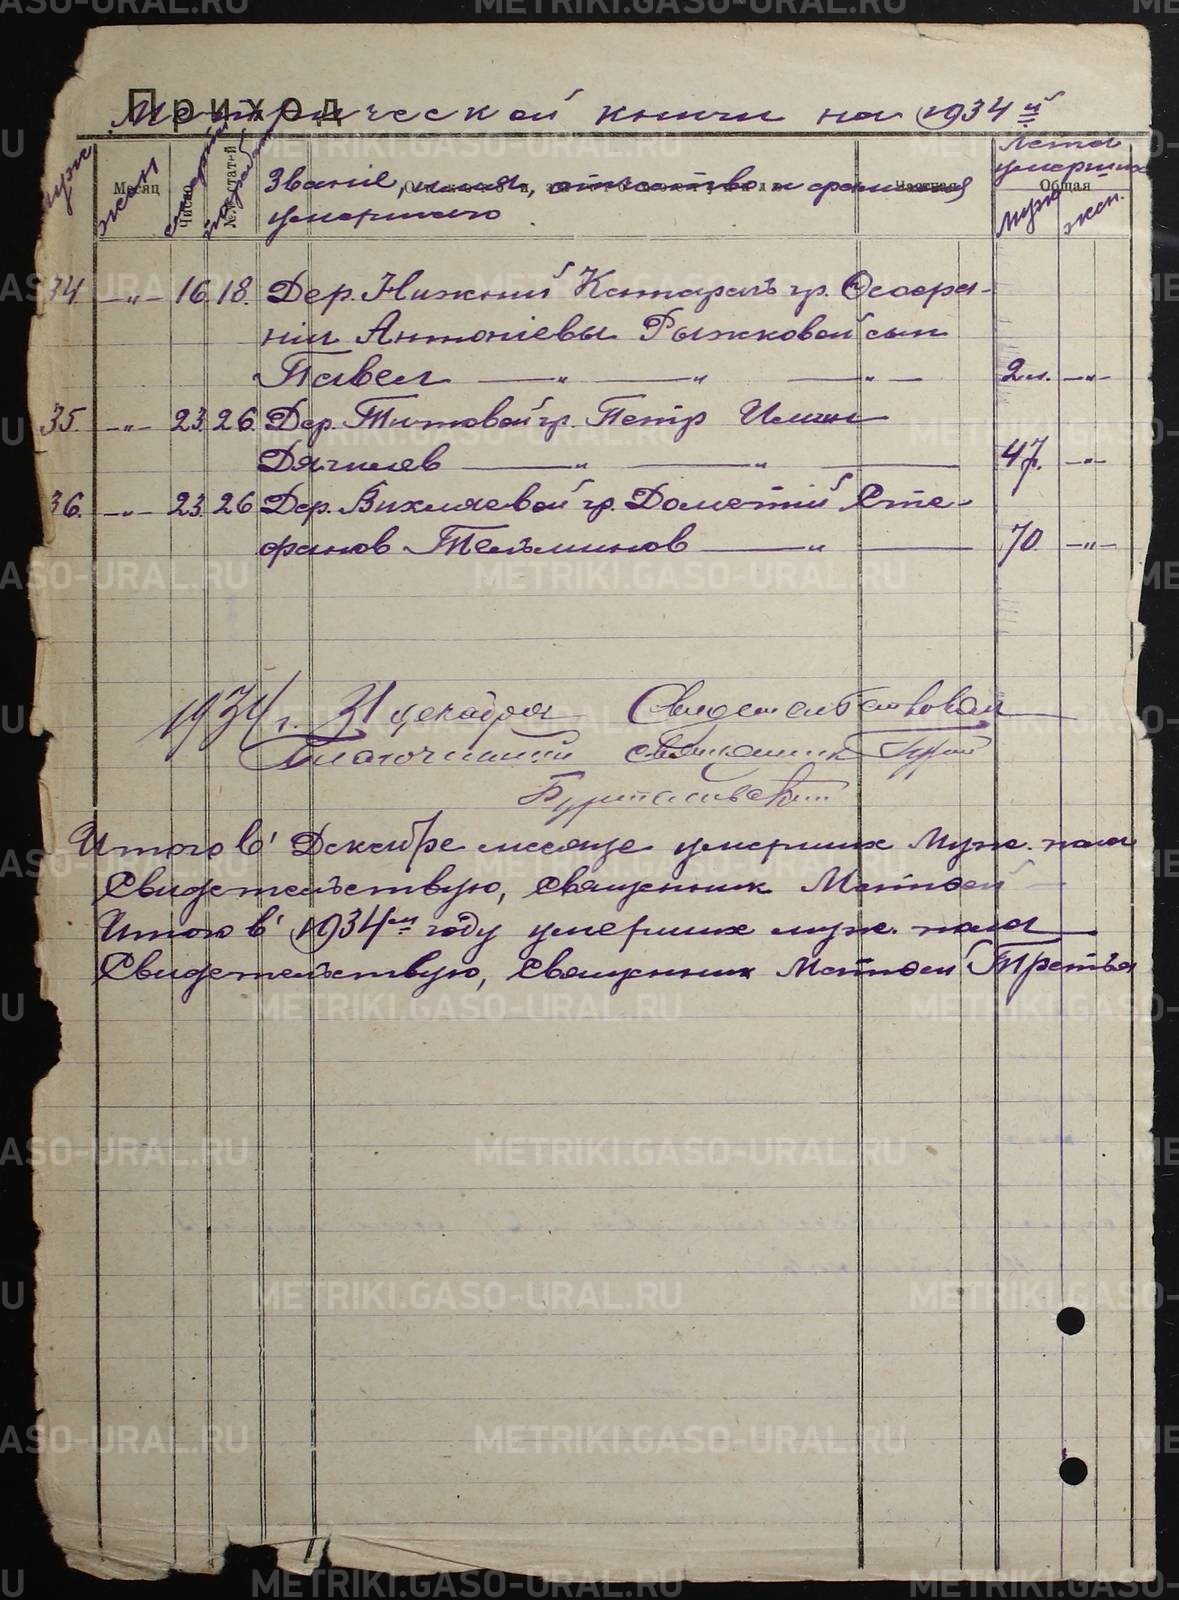 Приход
Метрической книги на 1934й
муж. жен. Месяц Число смерти погребен. № стат-й
Званіе, имя, отчество и фамилия
умершаго
Лета
умерших
Общая
муж. жен.
34 —„— 16 18. Дер. Нижний Катарачъ гр.
нии Антоніевы Рыжковой сын
Павел —„— —„— —„— 2 м. —„—
35. —„— 23. 26. Дер. Титовой гр. Петр Илиин
Дягилев —„— —„— 47. —„—
36. —„— 23. 26 Дер. Вихляевой гр. Дометий Сте-
фанов Тельминов —„— 70. —„—
1934 г. 31 декабря Свидетельствовал
Благочинный священник Гурий
Итого в Декабре месяце умерших Муж. пола
Свидетельствую, священник Матвей
Итого в 1934м году умерших муж. пола
Свидетельствую, Священник Матвей Третья
METRIKI.GASO-URAL.RU